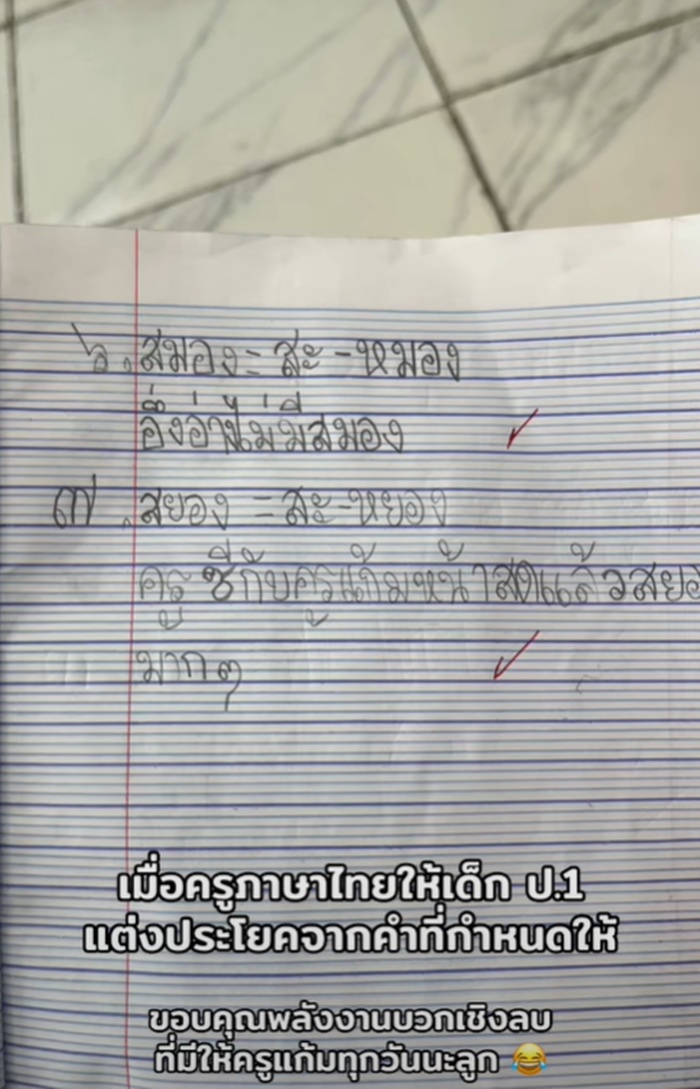 ๖. สมอง = สะ - หมอง
อึ่งอ่างไม่มีสมอง
๗. สยอง = สะ - หยอง
ครูซีกับครูแก้มหน้าสดแล้วสยอ
มากๆ
เมื่อครูภาษาไทยให้เด็ก ป.1
แต่งประโยคจากคำที่กำหนดให้
ขอบคุณพลังงานบวกเชิงลบ
ที่มีให้ครูแก้มทุกวันนะลูก 😂